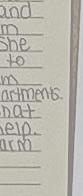 and
m
she
to
m
artments.
hat
elp.
arm